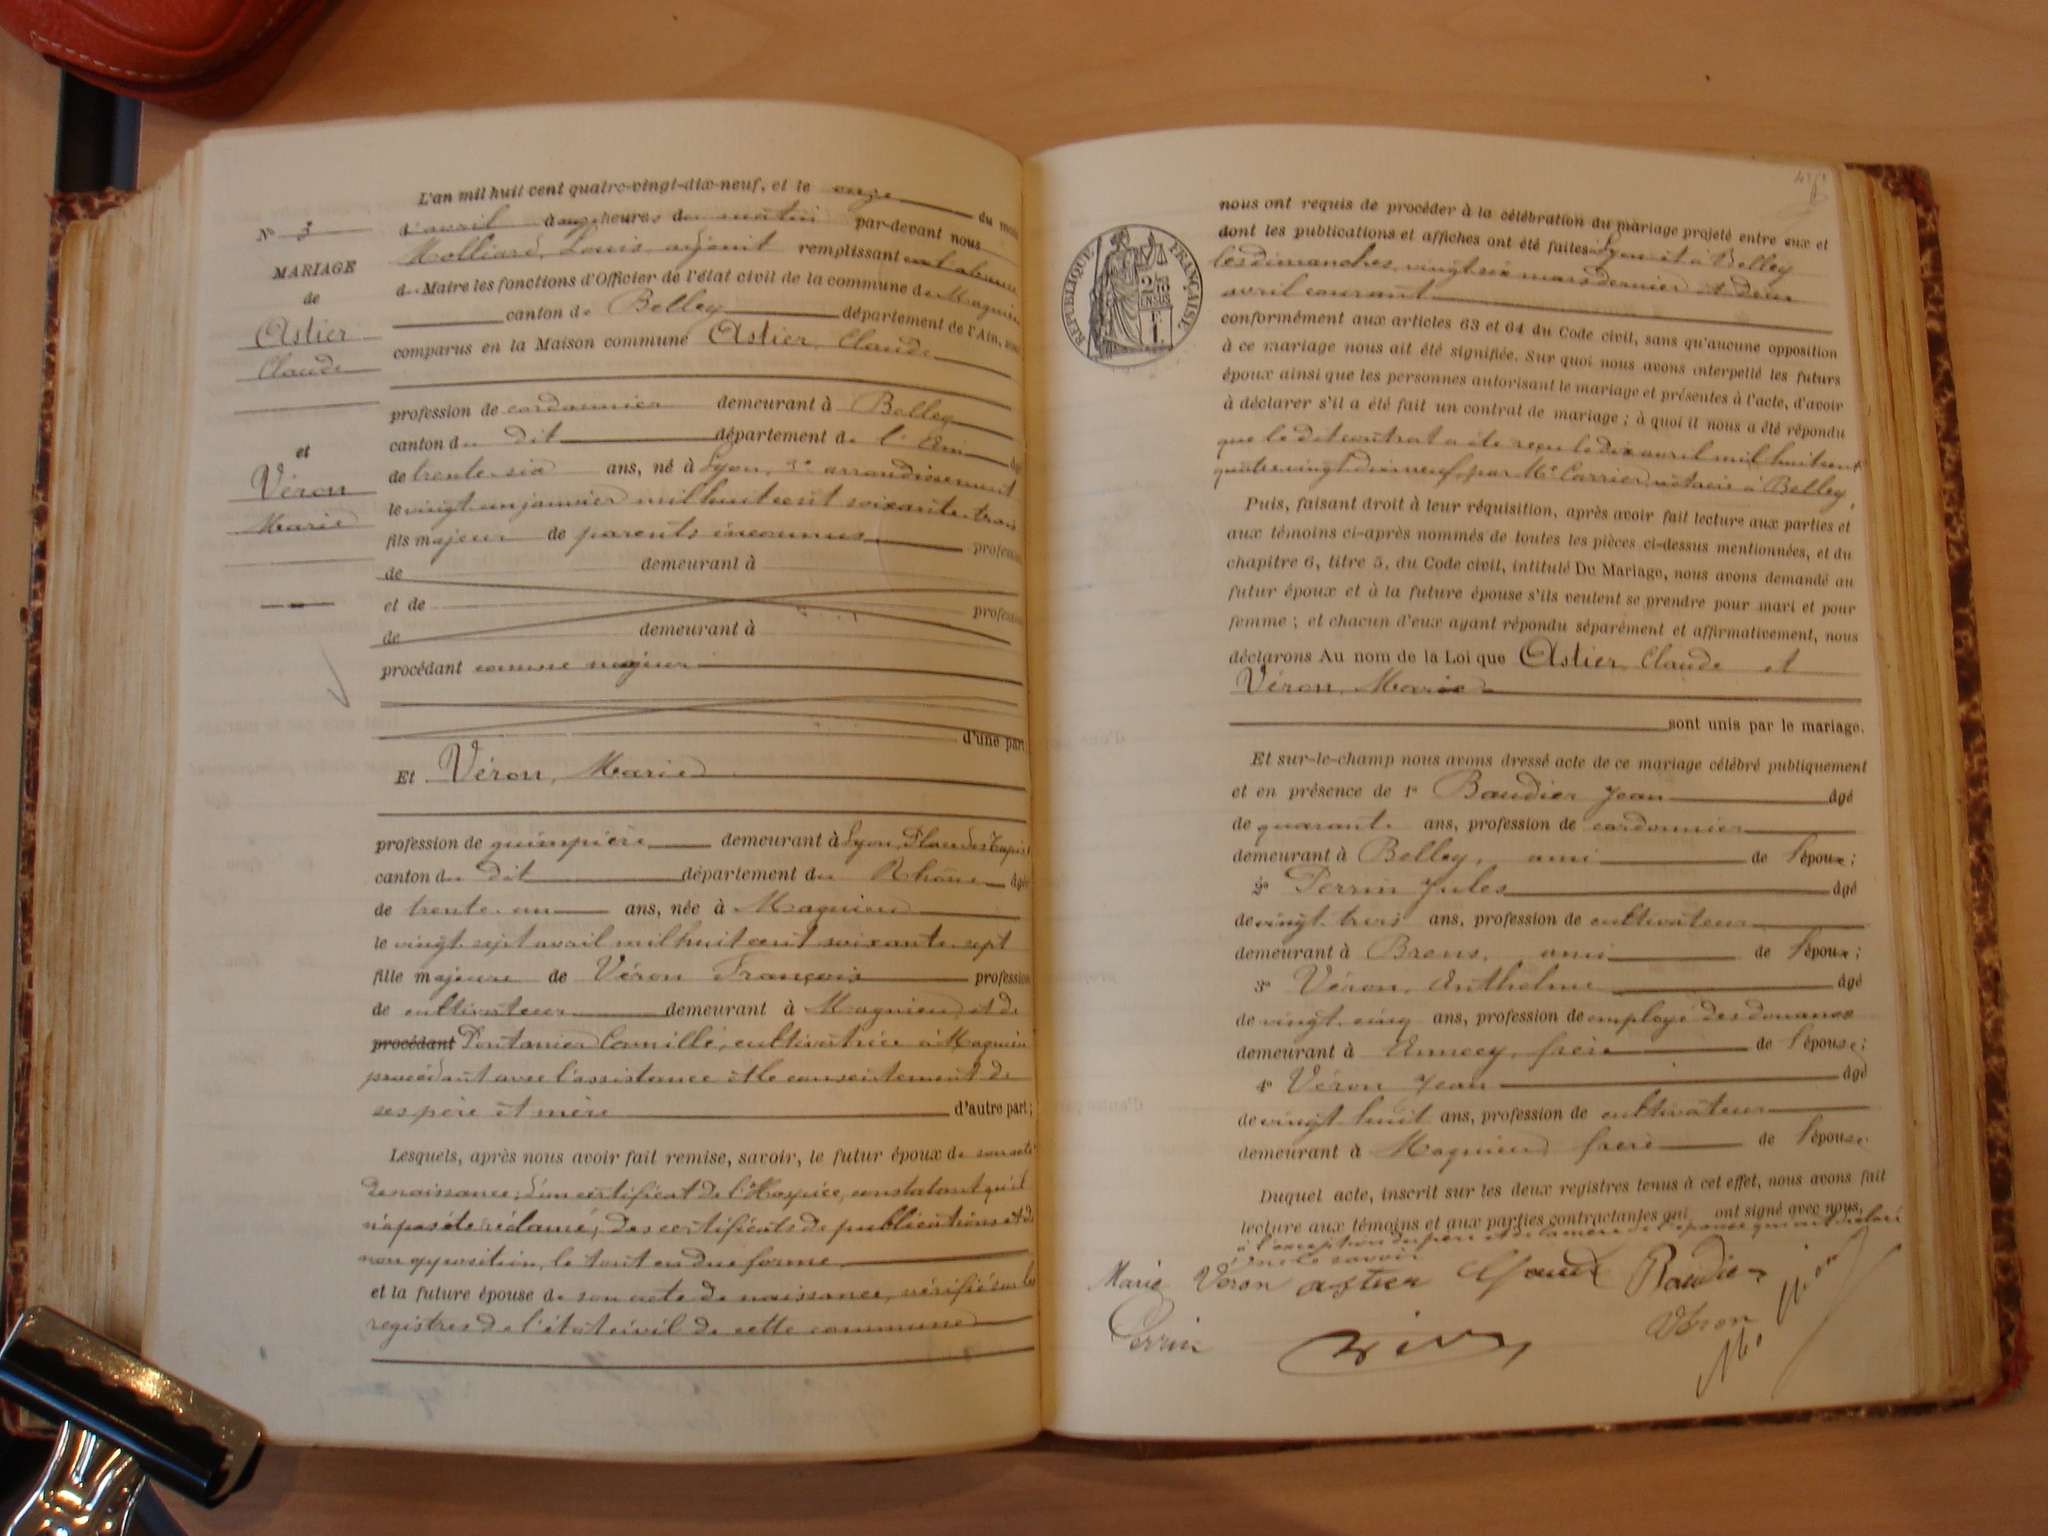 L'an mil huit cent quatre-vingt-dix-neuf, et le onze du mois
d'avril à onze heures du matin par-devant nous
Molliard, Louis, adjoint remplissant en l'absence
du Maire les fonctions d'Officier de l'état civil de la commune de Magnieu
canton de Belley département de l'Ain, sont
comparus en la Maison commune Astier, Claude
profession de cordonnier demeurant à Belley
canton du dit département de l'Ain âgé
de trente-six ans, né à Lyon, 3e arrondissement
le vingt-un janvier mil huit cent soixante-trois
fils majeur de parents inconnus profession
de demeurant à
et de profession
de demeurant à
procédant comme majeur
d'une part
N° 3
MARIAGE
de
Astier
Claude
et
Véron
Marie
Et Véron, Marie
profession de guimpière demeurant à Lyon, Pl. au des Tapis
canton du dit département du Rhône âgée
de trente-un ans, née à Magnieu
le vingt-sept avril mil huit cent soixante-sept
fille majeure de Véron François profession
de cultivateur demeurant à Magnieu et de
procédant Fontanier Camille, cultivatrice à Magnieu
procédant avec l'assistance et le consentement de
ses père et mère d'autre part;
Lesquels, après nous avoir fait remise, savoir, le futur époux de son acte
de naissance; d'un certificat de l'Hospice, constatant qu'il
n'a pas été réclamé; des certificats de publications et de
non opposition, le tout en due forme
et la future épouse de son acte de naissance, vérifié sur les
registres de l'état civil de cette commune
nous ont requis de procéder à la célébration du mariage projeté entre eux et
dont les publications et affiches ont été faites à Lyon et à Belley
les dimanches, vingt-six mars dernier et deux
avril courant
RÉPUBLIQUE FRANÇAISE
conformément aux articles 63 et 64 du Code civil, sans qu'aucune opposition
à ce mariage nous ait été signifiée. Sur quoi nous avons interpellé les futurs
époux ainsi que les personnes autorisant le mariage et présentes à l'acte, d'avoir
à déclarer s'il a été fait un contrat de mariage; à quoi il nous a été répondu
que le dit contrat a été reçu le dix avril mil huit cent
quatre-vingt-dix-neuf, par Me Carrier notaire à Belley,
Puis, faisant droit à leur réquisition, après avoir fait lecture aux parties et
aux témoins ci-après nommés de toutes les pièces ci-dessus mentionnées, et du
chapitre 6, titre 5, du Code civil, intitulé Du Mariage, nous avons demandé au
futur époux et à la future épouse s'ils veulent se prendre pour mari et pour
femme; et chacun d'eux ayant répondu séparément et affirmativement, nous
déclarons Au nom de la Loi que Astier, Claude et
Véron, Marie
sont unis par le mariage.
Et sur-le-champ nous avons dressé acte de ce mariage célébré publiquement
et en présence de 1° Baudier Jean âgé
de quarante ans, profession de cordonnier
demeurant à Belley, ami de l'époux;
2° Perrin Jules âgé
de vingt-trois ans, profession de cultivateur
demeurant à Brens, ami de l'époux;
3° Véron, Anthelme âgé
de vingt-cinq ans, profession de employé des douanes
demeurant à Annecy, frère de l'épouse;
4° Véron Jean âgé
de vingt-huit ans, profession de cultivateur
demeurant à Magnieu frère de l'épouse.
Duquel acte, inscrit sur les deux registres tenus à cet effet, nous avons fait
lecture aux témoins et aux parties contractantes qui ont signé avec nous,
à l'exception du père et de la mère de l'épouse qui ont déclaré
ne le savoir
Marie Véron astier Claude Baudier
Perrin Véron